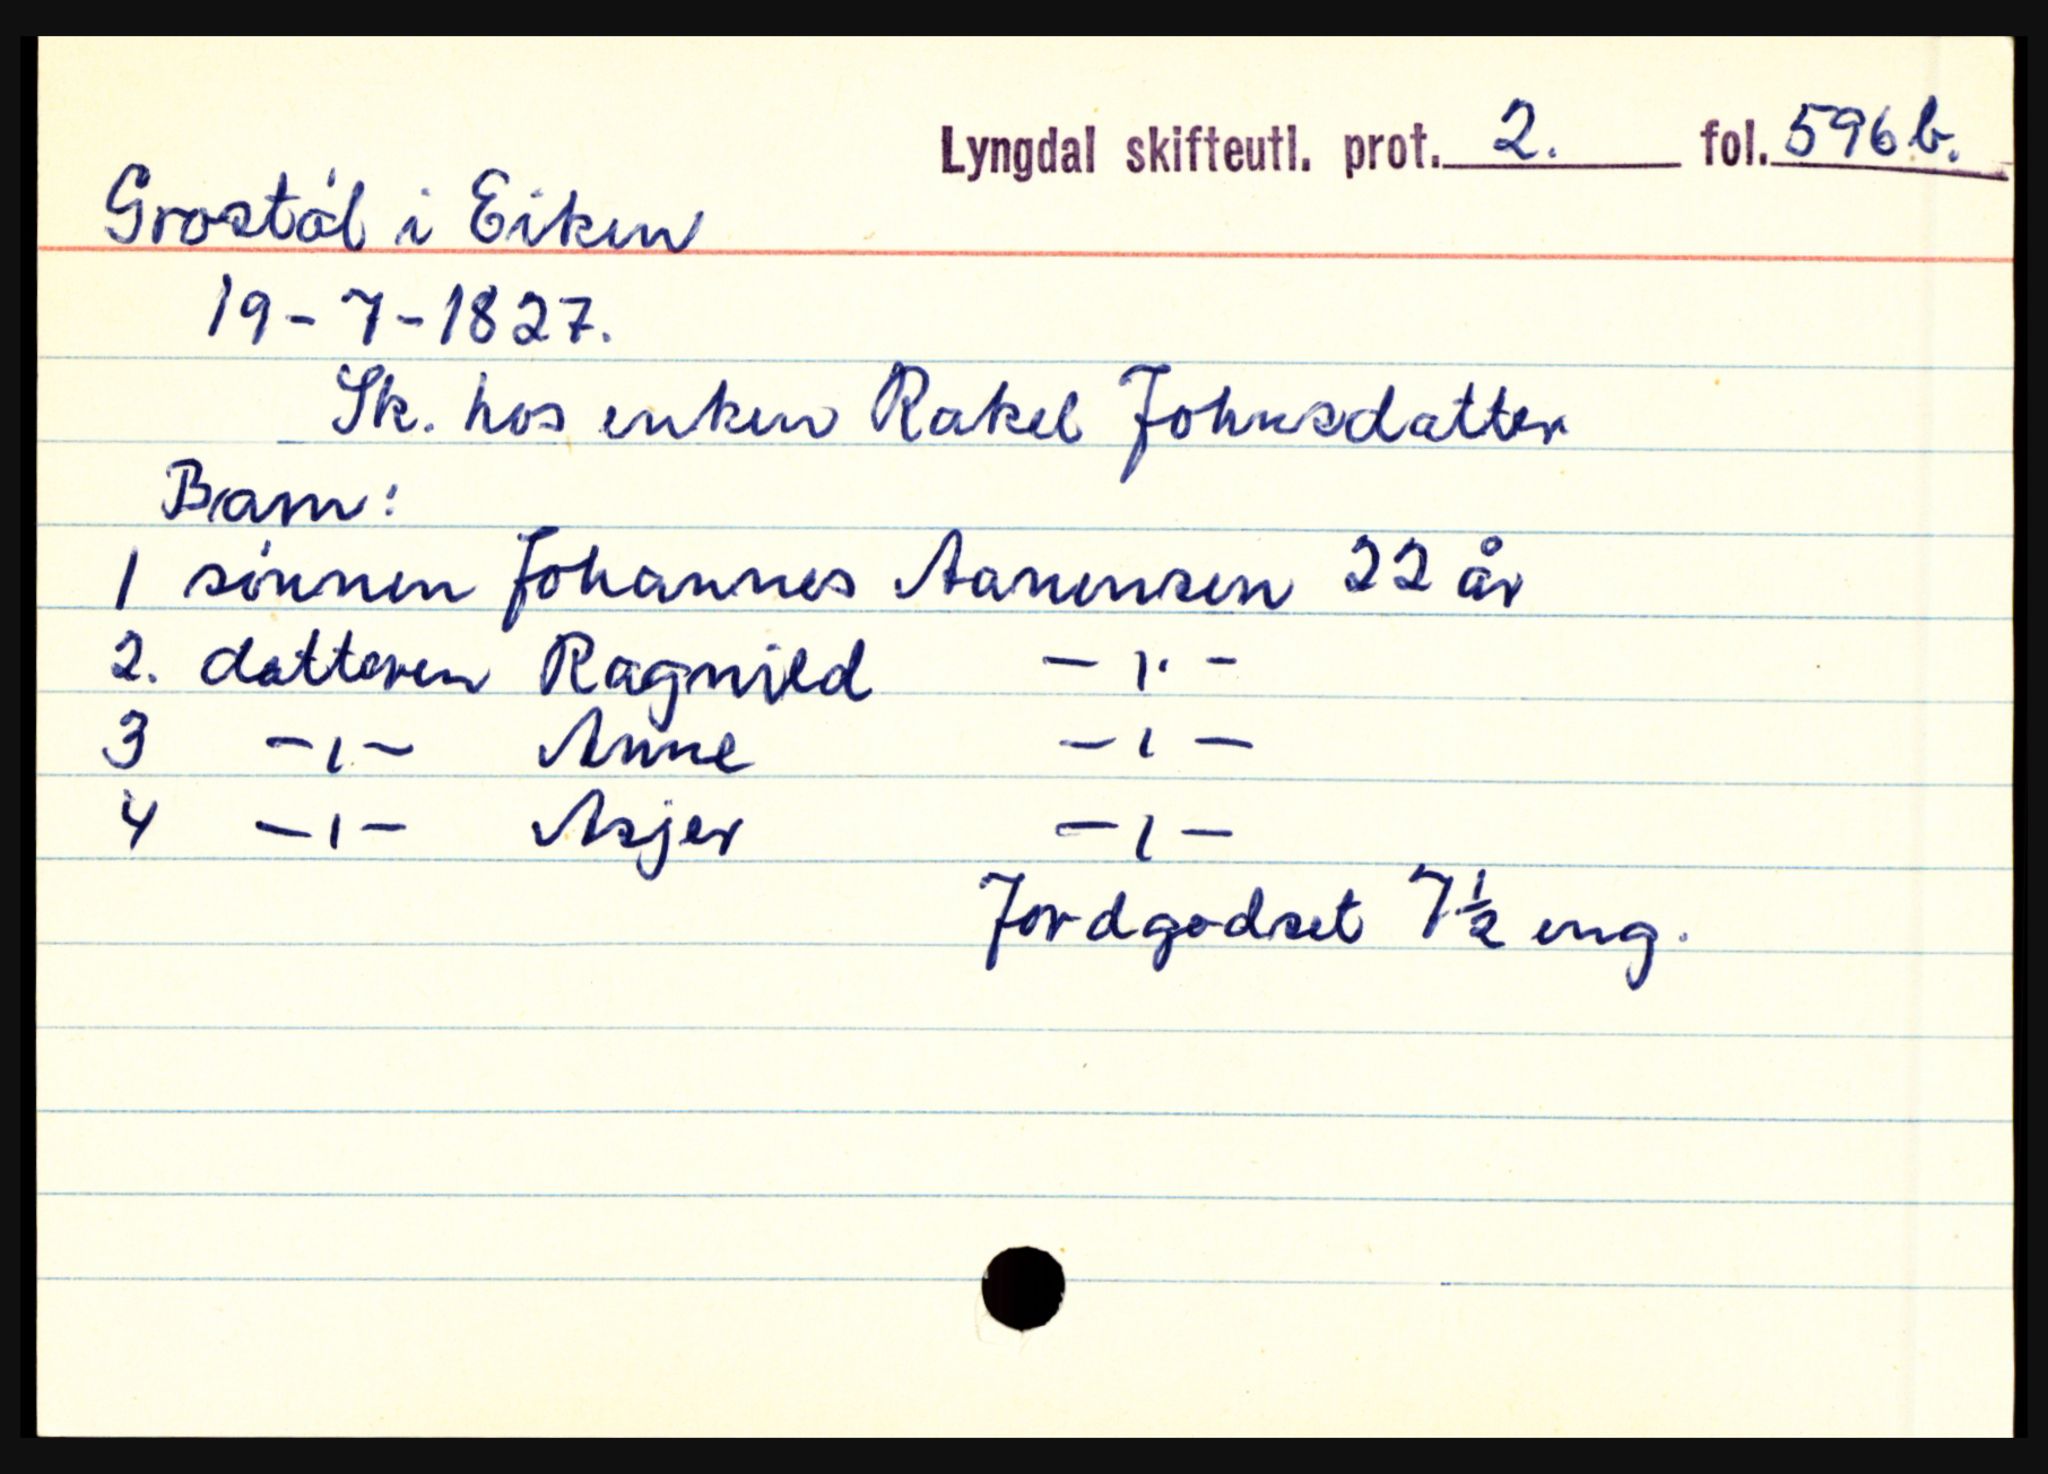 Lyngdal skifteutl. prot. 2. fol. 596 b.
Grostøl i Eiken
19-7-1827.
Sk. hos enken Rakel Johnsdatter
Barn:
1 sønnen Johannes Aanensen 22 år
2. datteren Ragnild -"-
3 -"- Anne -"-
4 -"- Asjer -"-
Jordgodset 7 1/2 eng.